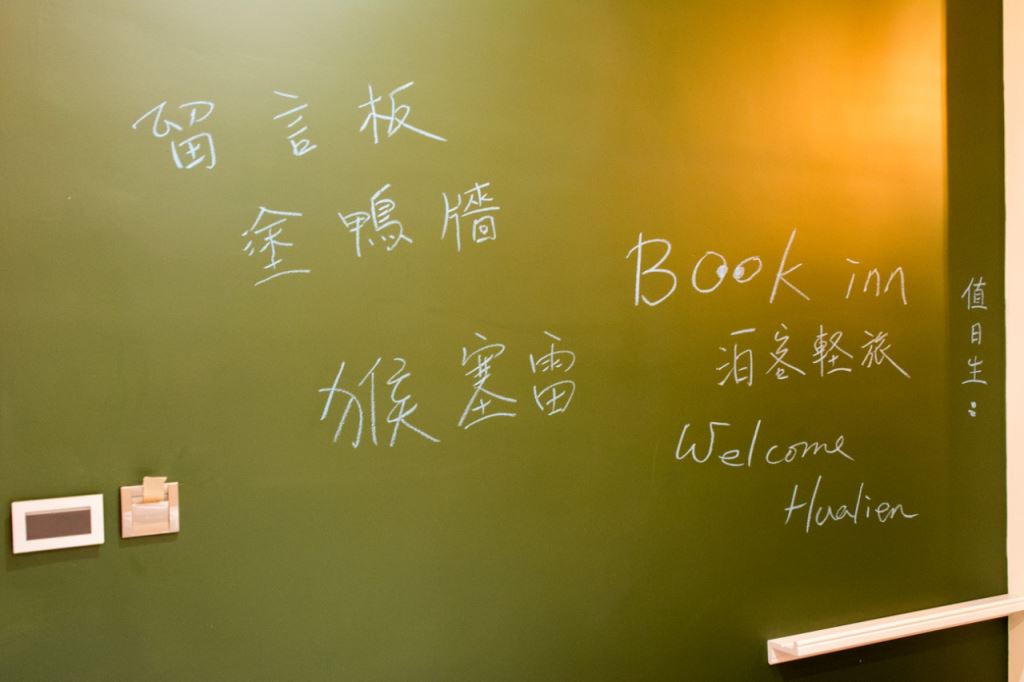 留言板
塗鴨牆
猴塞雷
Book inn
泊客輕旅
Welcome
Hualien
值日生：